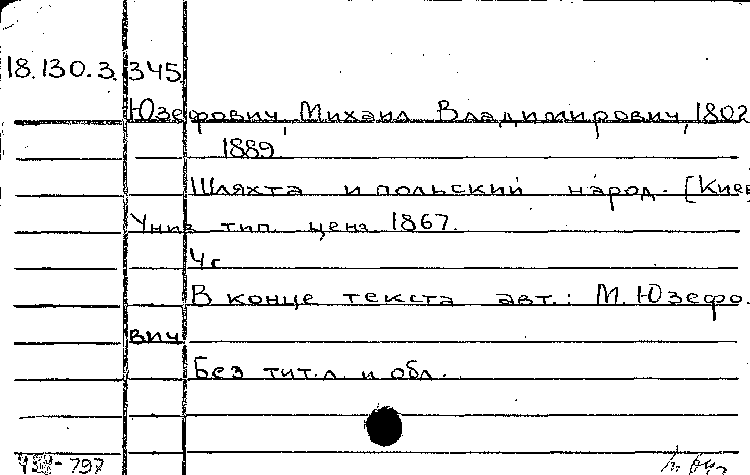 18.130.3.345
Юзефович, Михаил Владимирович, 1802
1889.
Шляхта и польский народ. [Киев
Унив тип. ценз. 1867.
4 с
В конце текста авт.: М. Юзефо-
вич
Без тит.л. и обл.
797